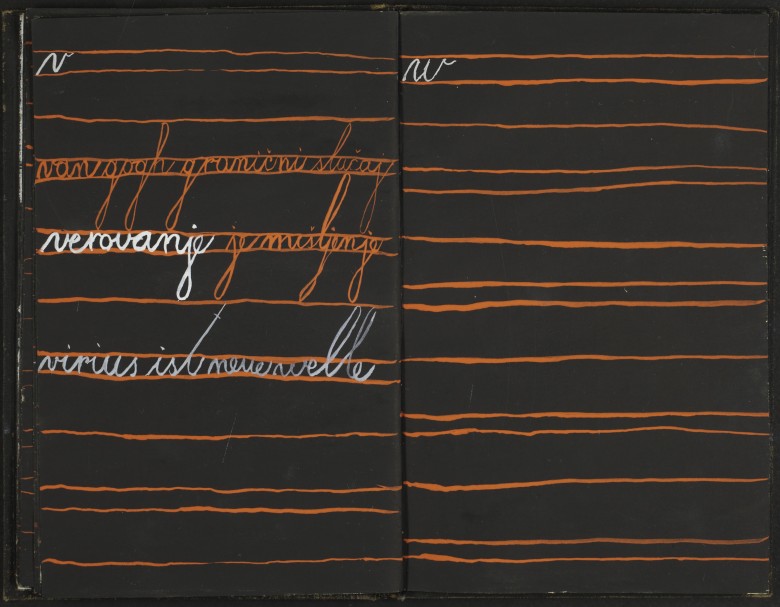 v
van gogh granični slučaj
verovanje je mišljenje
virius ist neue welle
w